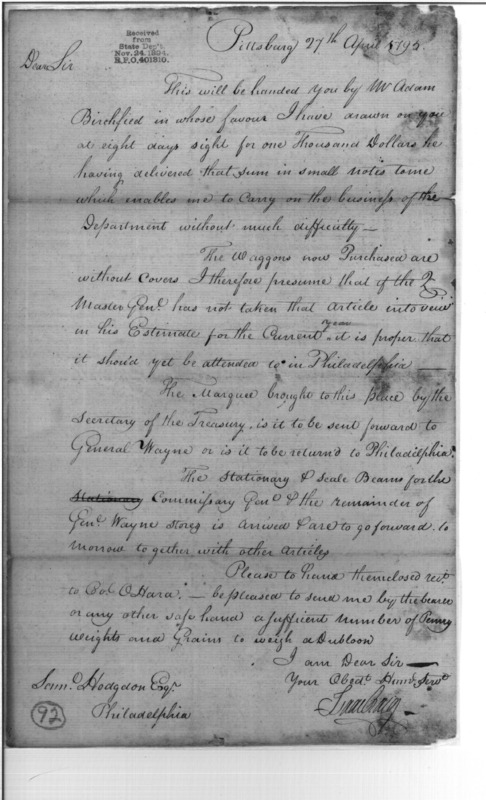 Received
from
State Dept.
Nov. 24, 1894.
R.P.O, 401810.
Pittsburg 27th April 1795.
Dear Sir
This will be handed you by Mr Adam
Birchfied in whose favour I have drawn on you
at eight days sight for one Thousand Dollars he
having delivered that sum in small notes to me
which enables me to Carry on the business of the
Department without much difficulty —
The Waggons now Purchased are
without Covers I therefore presume that if the
Master Genl. has not taken that article into veiw
in his Estemate for the Current year it is proper that
it should yet be attended to in Philadelphia —
The Marquee brought to this Place by the
Secretary of the Treasury. is it to be sent forward to
General Wayne or is it to be returnd to Philadelphia.
The Stationary & Scale Beams for the
Stationary Commissary Genl. & the remainder of
Genl. Wayne stores is arrived & are to go forward to
morrow to gether with other Articles
Please to hand the inclosed rect.
to Col. O Hara. — be pleased to send me by the bearer
or any other safe hand a suffient number of Penny
weights and Grains to weigh a Dubloon
I am Dear Sir —
Your Obedt. Humb. Servt.
Isaac Craig
Saml. Hodgdon Esqr.
Philadelphia
92